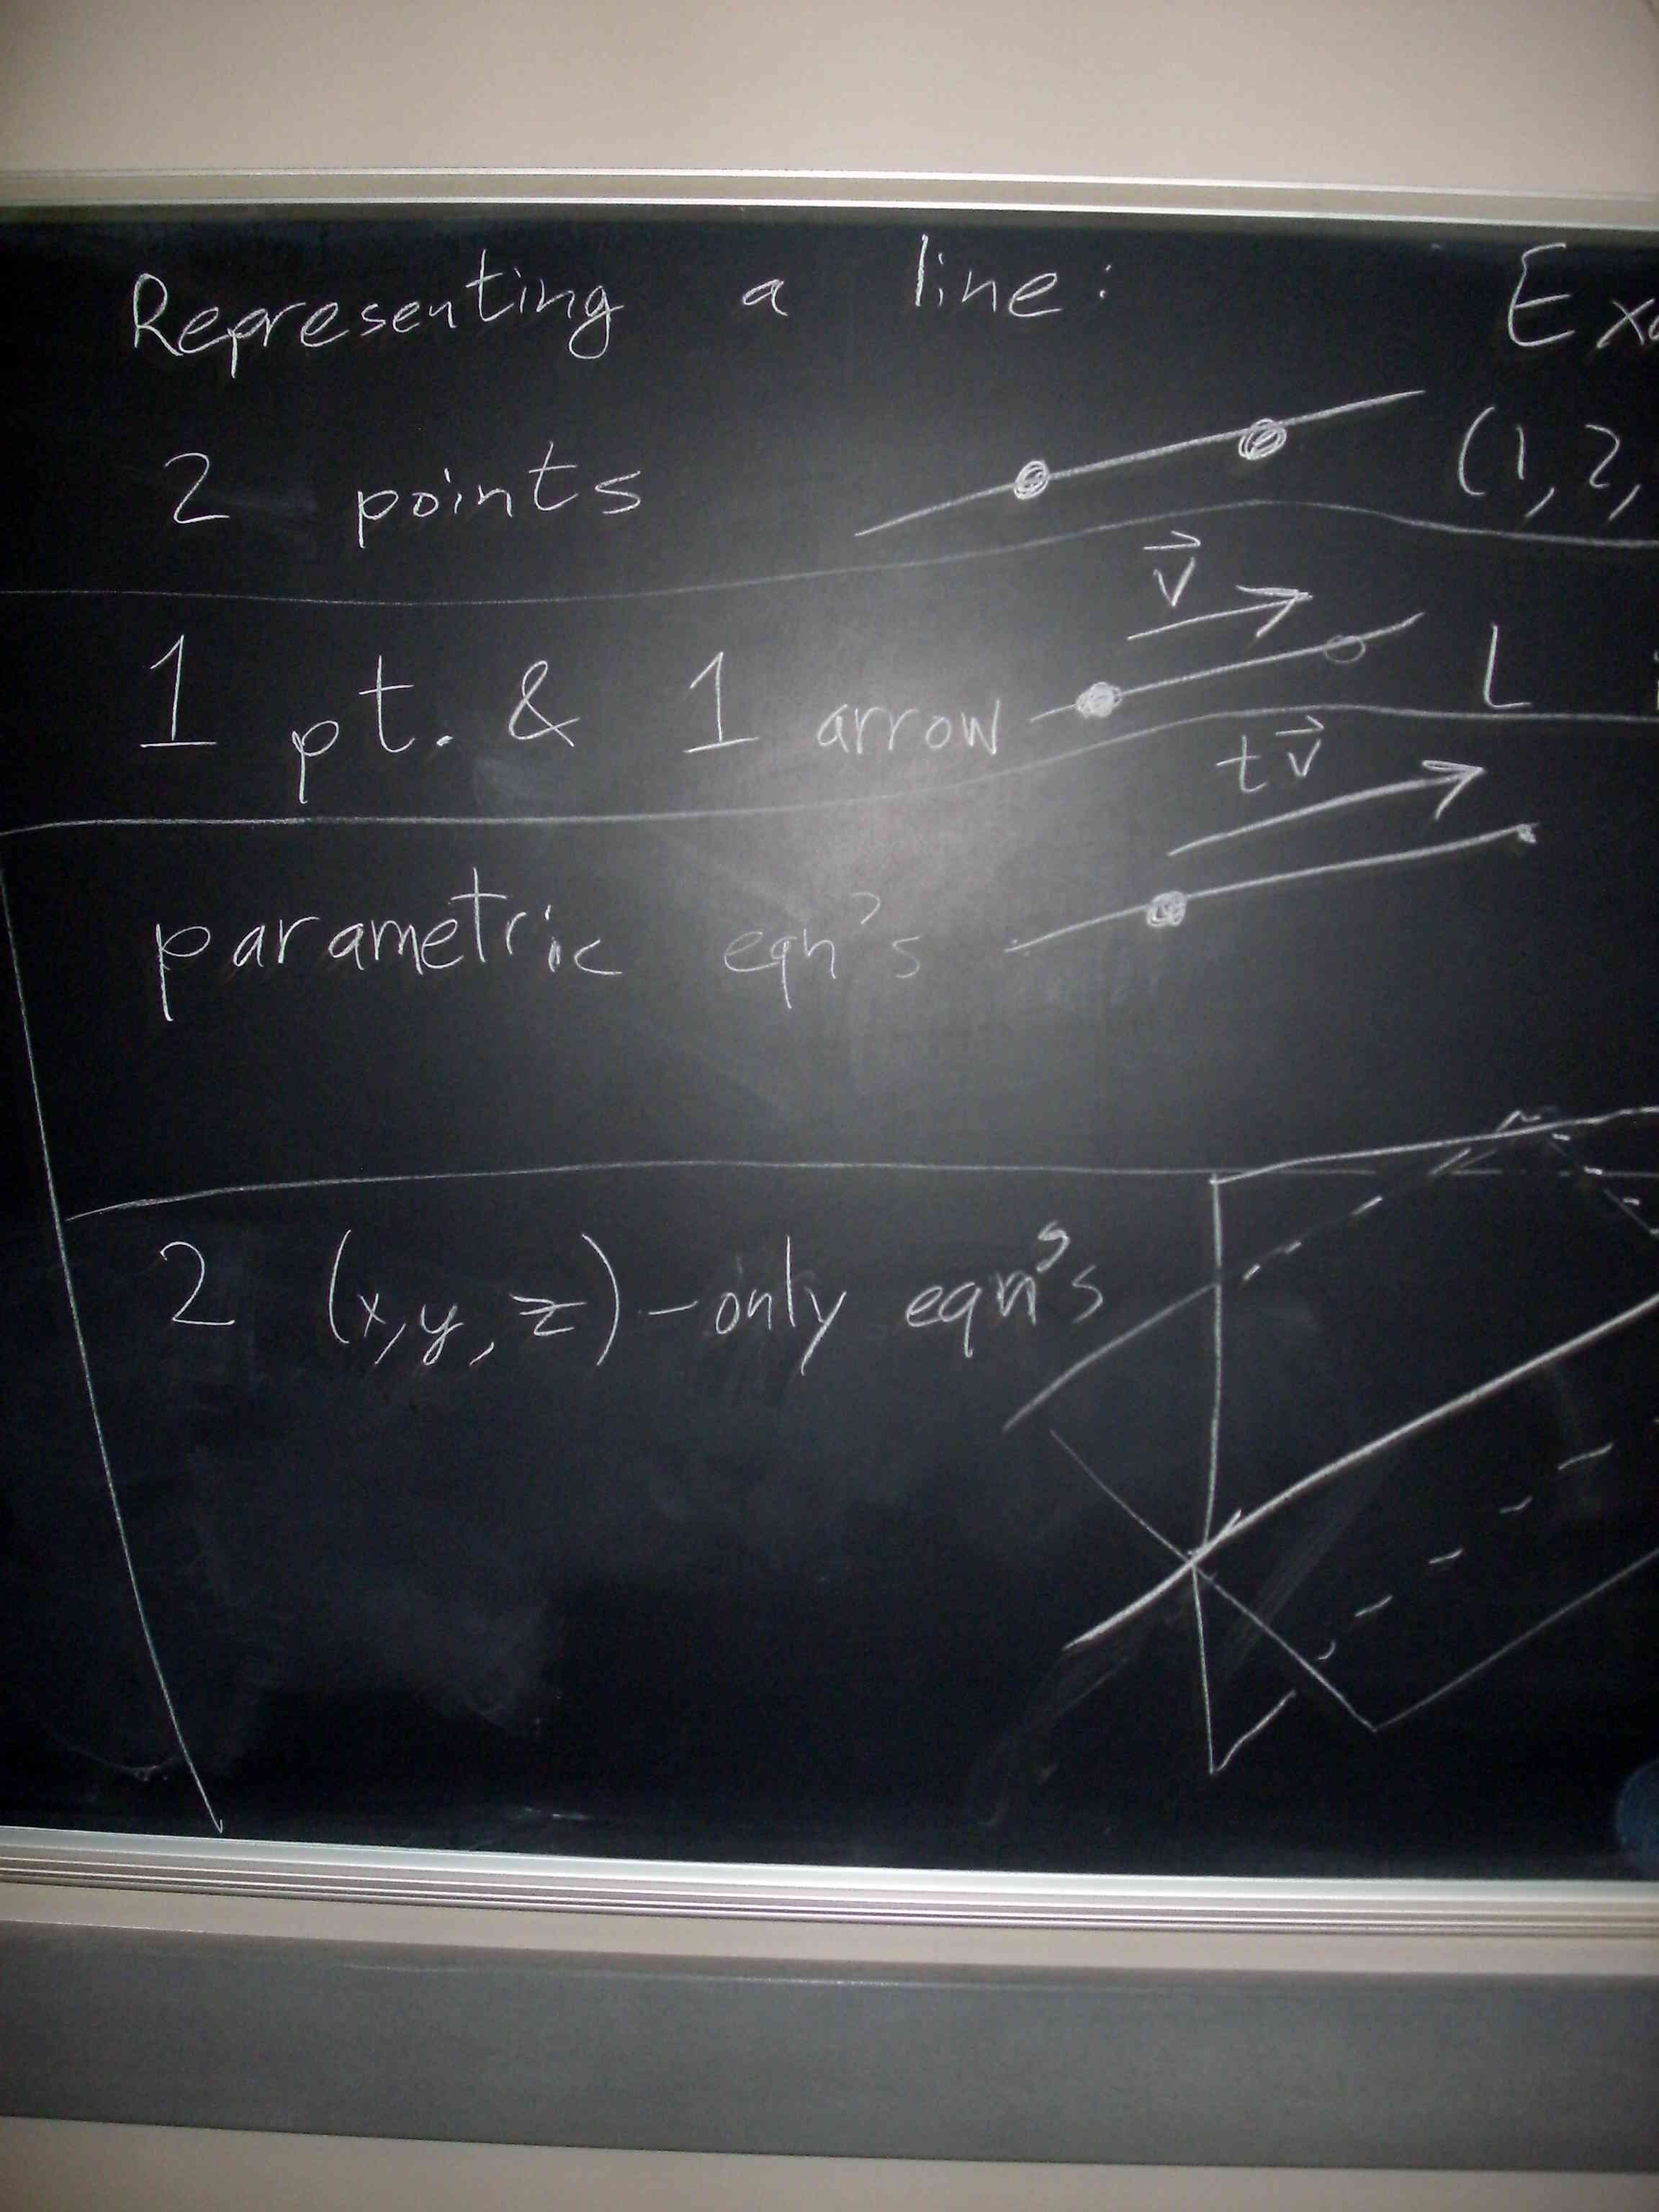 Representing a line:
2 points
(1,2,
v
1 pt. & 1 arrow
L
tv
parametric eqn's
2 (x,y,z)-only eqn's